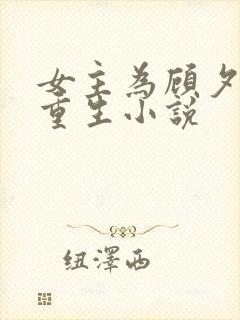 女主為顧夕
重生小說
纽澤西